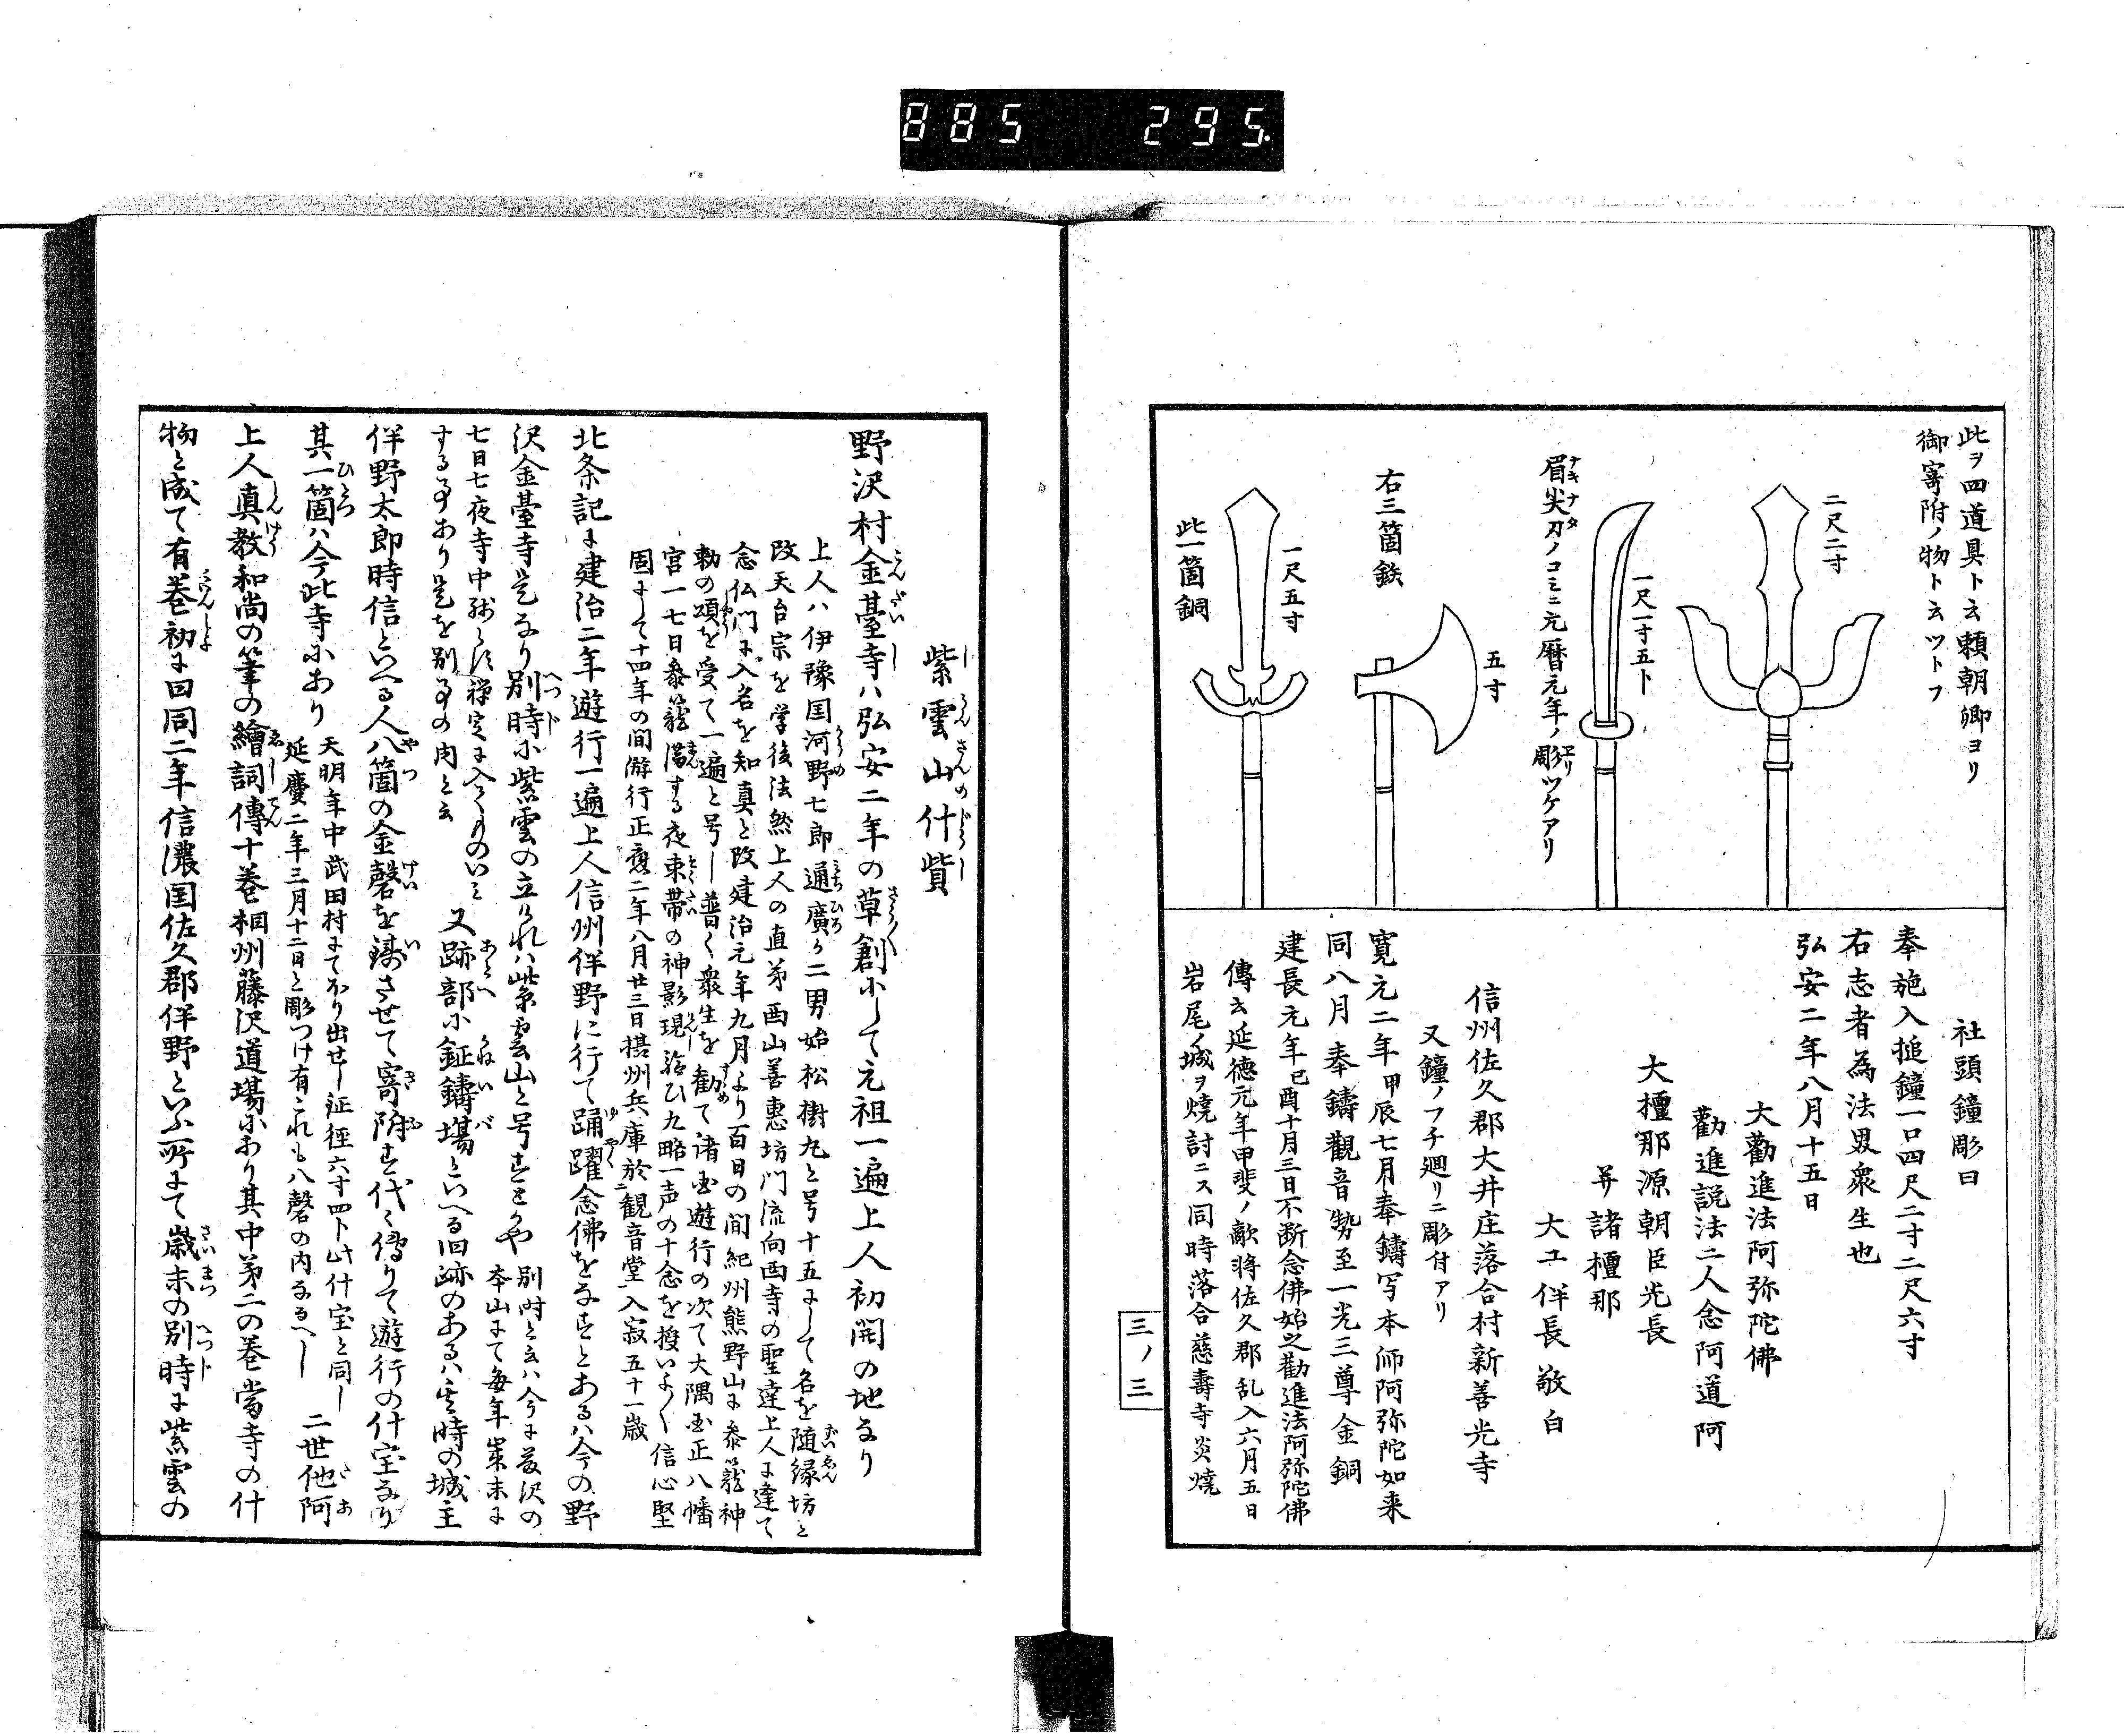 885 295.
此ヲ四道具ト云頼朝卿ヨリ
御寄附ノ物ト云ツトフ
二尺二寸
一尺一寸五卜
眉尖刀ノコミニ元暦元年ノ彫ツケアリ
ナキナタ
ヱリ
五寸
右三箇鉄
一尺五寸
此一箇銅
社頭鐘彫曰
奉施入搥鐘一口四尺二寸二尺六寸
右志者為法界衆生也
弘安二年八月十五日
大勸進法阿弥陀佛
勸進説法二人念阿道阿
大檀那源朝臣光長
并諸檀那
大工伴長敬白
信州佐久郡大井庄落合村新善光寺
又鐘ノフチ廻リニ彫付アリ
寛元二年甲辰七月奉鑄写本師阿弥陀如来
同八月奉鑄觀音勢至一光三尊金銅
建長元年己酉十月三日不断念佛始之勸進法阿弥陀佛
傳云延徳元年甲斐ノ敵将佐久郡乱入六月五日
岩尾ノ城ヲ焼討ニス同時落合慈壽寺炎焼
三ノ三
紫雲山什貲
野沢村金臺寺ハ弘安二年の草創にして元祖一遍上人初開の地なり
上人ハ伊豫国河野七郎通廣か二男始松樹丸と号十五にして名を随縁坊と
改天台宗を学後法然上人の直弟西山善惠坊門流向西寺の聖達上人に達て
念仏門に入名を知真と改建治元年九月より百日の間紀州熊野山に参籠神
勅の頌を受て一遍と号し普く衆生を勧て諸国遊行の次て大隅国正八幡
宮一七日参籠満する夜束帯の神影現給ひ九略一声の十念を授いよく信心堅
固にして十四年の間游行正應二年八月廿三日摂州兵庫於観音堂入寂五十一歳
北条記に建治二年遊行一遍上人信州伴野に行て踊躍念佛をなすとあるハ今の野
沢金臺寺是なり別時に紫雲の立けれハ紫雲山と号すとかや
別時と云ハ今に藤沢の
本山にて毎年歳末に
七日七夜寺中
禅定に入
する事あり是を別事の内と云
又跡部に鉦鑄場といへる旧跡のあるハ其時の城主
伴野太郎時信といへる人八箇の金磬を鋳させて寄附す代々傳りて遊行の什宝なり
其一箇ハ今此寺にあり
天明年中武田村にてほり出せし征徑六寸四卜此什宝と同し
延慶二年三月十二日と彫つけ有これも八磬の内なるへし
二世他阿
上人真教和尚の筆の繪詞傳十巻相州藤沢道場にあり其中第二の巻當寺の什
物と成て有巻初に曰同二年信濃国佐久郡伴野といふ所にて歳末の別時に紫雲の